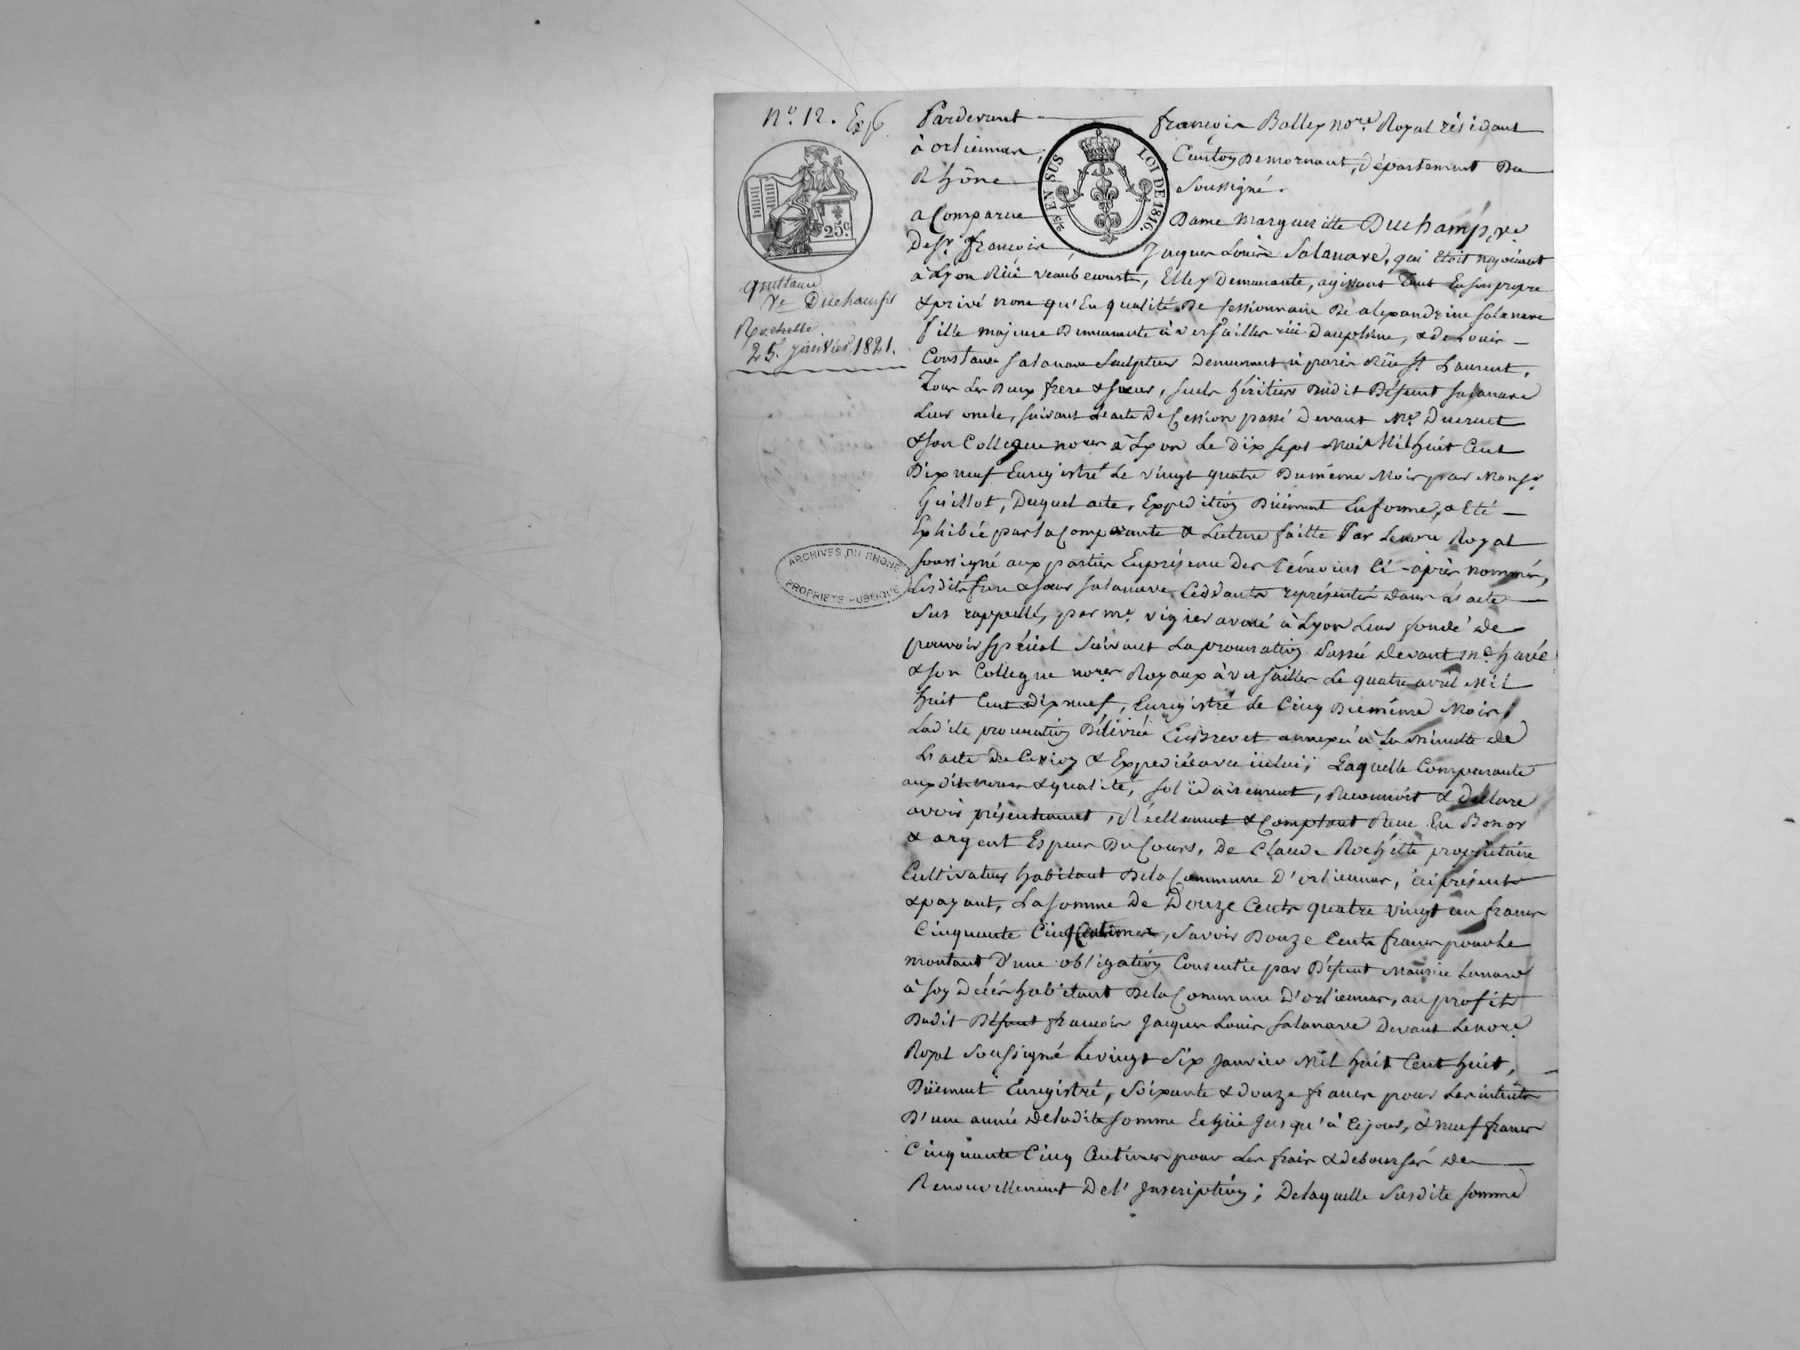 N° 12. Exp
Pardevant françois Balley no.re Royal résidant
à orlienas, Canton De mornant, département Du
Rhône Soussigné.
25c.
2/5 EN SUS LOI DE 1816.
a Comparue Dame Margueritte Duchamp, v.e
De S.r françois Jacques Louis Salanave, qui étoit négociant
à Lyon Rüe veaubecourt, Elle y demeurante, agissant tant En son propre
& privé nom qu'En qualité De Cessionnaire De alexandrine Salanave
fille majeure Demeurante à versailles rüe Dauphine, & de Louis
Constant Salanave Sculpteur Demeurant à paris Rüe S.t Laurent,
Tous les Deux frere & sœur, seuls héritiers Dudit Défunt Salanave
quittance
V.e Duchamp à
Rochette
25 janvier 1821.
Leur oncle, suivant L'acte De Cession passé devant M.e Ducruet
& son Collegue no.res à Lyon Le Dix sept Mai Mil huit Cent
Dix neuf Enregistré Le vingt quatre Du même Mois par Mons.r
Guillot, Duquel acte, Expedition Düement En forme, a Eté
Exhibée par la Comparante & Lecture faitte Par Le no.re Royal
soussigné aux parties En présence des témoins Ci-après nommés,
ARCHIVES DU RHONE
PROPRIÉTÉ PUBLIQUE
Lesdits frere & sœur Salanave Cédants représentés dans L'acte
Sus rappellé, par M.e vigier avoué à Lyon Leur fondé de
pouvoir spécial Suivant La procuration Passée devant M.e
& son Collegue no.res Royaux à versailles Le quatre avril Mil
huit Cent Dix neuf, Enregistré le Cinq Du même Mois,
Ladite procuration Délivrée En Brevet annexée à La Minutte de
L'acte de Cession & Expediée avec icelui; Laquelle Comparante
aux dits noms & qualité, solidairement, Reconnoit & déclare
avoir présentement, Réellement & Comptant Reçu En Bon or
& argent Espèces Du Cours, De Claude Rochette propriétaire
Cultivateur habitant De la Commune D'orlienas, ici présent
& payant, La somme De Douze Cents quatre vingt un francs
Cinquante Cinq Centimes, Savoir Douze Cents francs pour Le
montant D'une obligation Consentie par Défunt Maurice
à son Décès habitant De la Commune D'orlienas, au profit
Dudit Défunt françois Jacques Louis Salanave Devant Le no.re
Royal Soussigné Le vingt Six Janvier Mil huit Cent huit,
Düement Enregistré, Soixante & douze francs pour Les intérêts
D'une année de ladite somme Echüe Jusqu'à Ce jour, & neuf francs
Cinquante Cinq Centimes pour Les frais & déboursés de
Renouvellement De l'Inscription; De laquelle Susdite somme